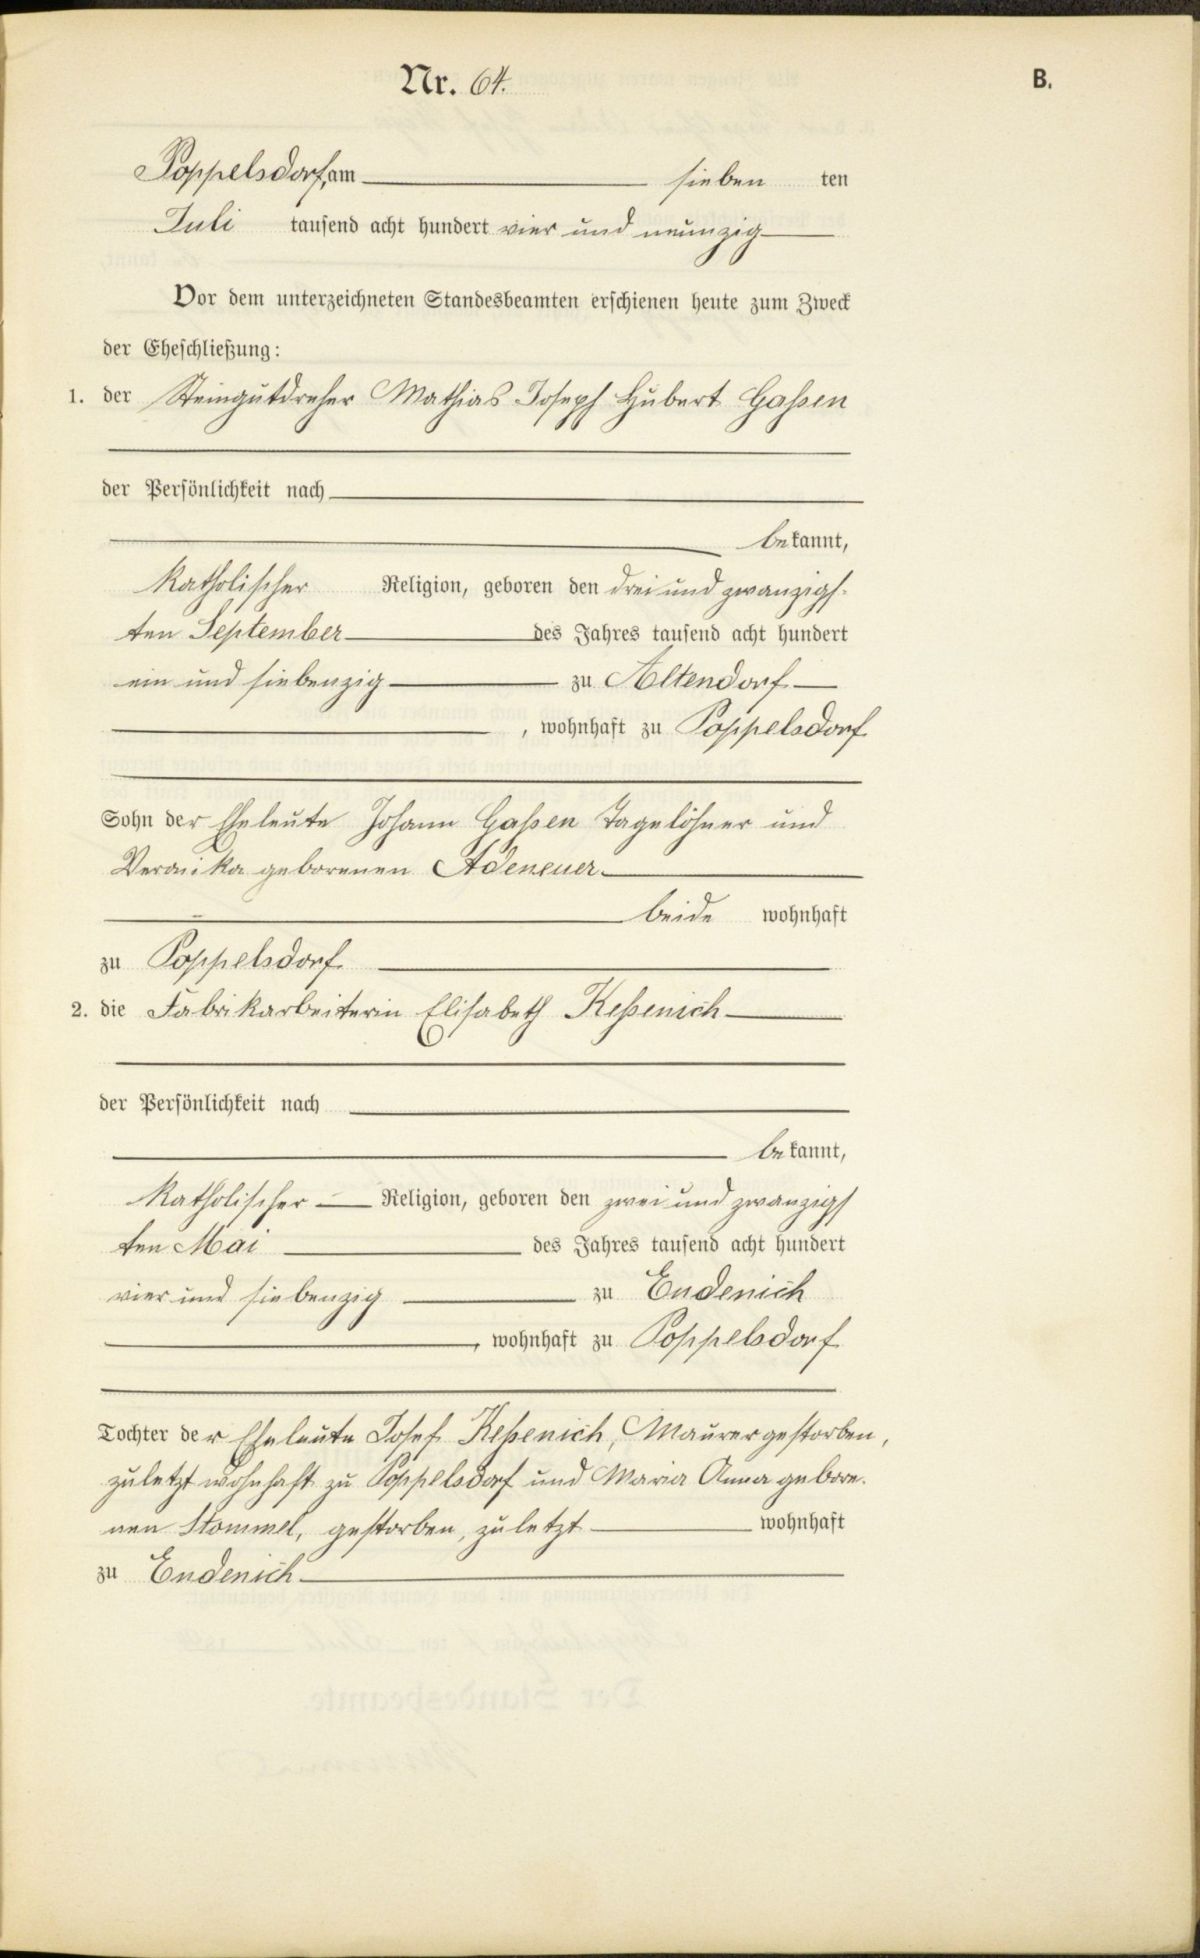 Nr. 64.
B.
Poppelsdorf, am sieben ten
Juli tausend acht hundert vier und neunzig
Vor dem unterzeichneten Standesbeamten erschienen heute zum Zweck
der Eheschließung:
1. der Steingutdreher Mathias Joseph Hubert Gaßen
der Persönlichkeit nach
bekannt,
katholischer Religion, geboren den drei und zwanzigs-
ten September des Jahres tausend acht hundert
ein und siebenzig zu Altendorf
, wohnhaft zu Poppelsdorf
Sohn der Eheleute Johann Gaßen Tagelöhner und
Veronika geborenen Adeneuer
beide wohnhaft
zu Poppelsdorf
2. die Fabrikarbeiterin Elisabeth Keßenich
der Persönlichkeit nach
bekannt,
katholischer Religion, geboren den zwei und zwanzigs
ten Mai des Jahres tausend acht hundert
vier und siebenzig zu Endenich
, wohnhaft zu Poppelsdorf
Tochter der Eheleute Josef Keßenich, Maurer gestorben,
zuletzt wohnhaft zu Poppelsdorf und Maria Anna gebore-
nen Stommel, gestorben, zuletzt wohnhaft
zu Endenich